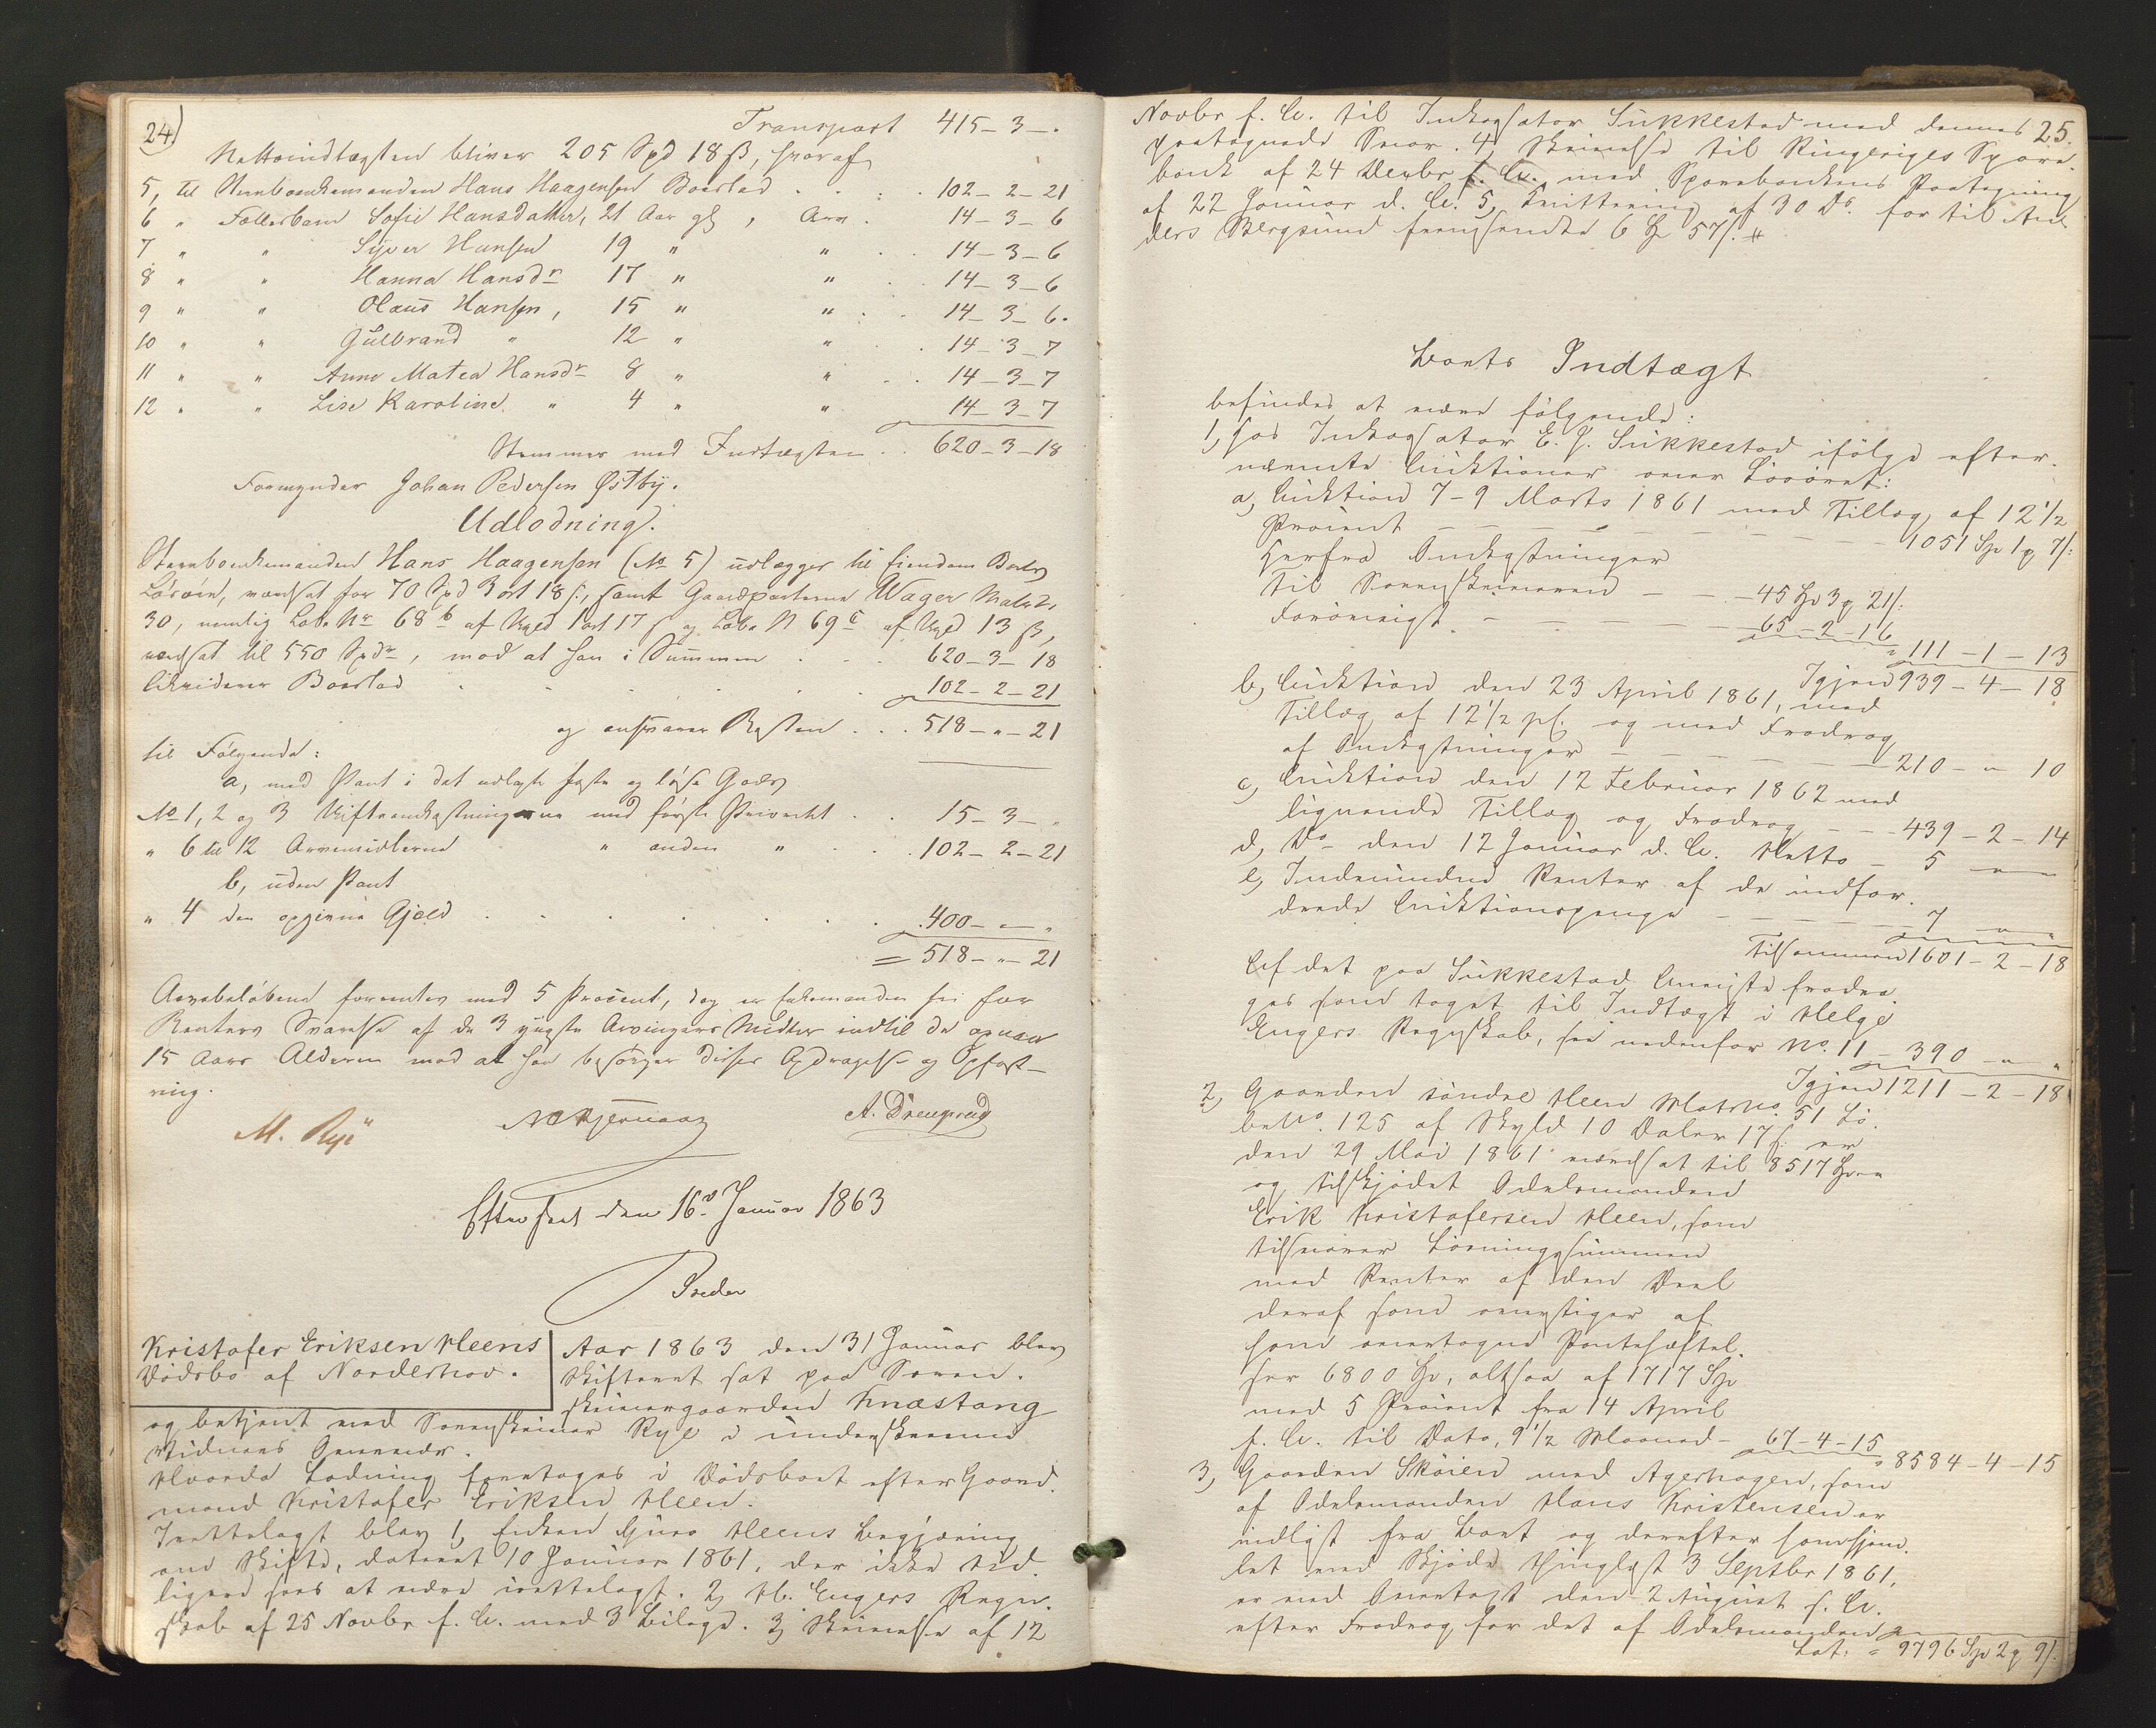 24)
Transport 415 - 3 - .
Nettoindtægten bliver 205 Spd 18 ß, hvoraf
5, til Sterboenkemanden Hans Haagensen Boeslod . . 102 - 2 - 21
6 " Fællesbarn Sofie Hansdatter, 21 Aar gl, Arv . 14 - 3 - 6
7 " " Syver Hansen 19 " " . . 14 - 3 - 6
8 " " Hanna Hansdr 17 " " . . 14 - 3 - 6
9 " " Olaus Hansen, 15 " " . . 14 - 3 - 6.
10 " " Gulbrand " 12 " " . 14 - 3 - 7
11 " " Anne Matea Hansdr 8 " " . . 14 - 3 - 7
12 " " Lise Karoline " 4 " " 14 - 3 - 7
Stemmer med Indtægten . . 620 - 3 - 18
Formynder Johan Pedersen Østby.
Udlodning.
Sterboenkemanden Hans Haagensen (No 5) udlægges til Eiendom Boets
Løsøre, vurdsat for 70 Spd 3 ort 18 ß, samt Gaardparterne Wager Matr. No
30, nemlig Løbe Nr 68 b af Skyld 1 ort 17 ß og Løbe N 69 c af Skyld 13 ß,
vurdsat til 550 Spdr, mod at han i Summen . . . 620 - 3 - 18
likviderer Boeslod . . . . . . 102 - 2 - 21
og ansvarer Resten . . . 518 - " - 21
til Følgende:
a, med Pant i det udlagte faste og løse Gods
No 1, 2 og 3 Skifteomkostningerne med første Prioritet . . 15 - 3 - "
" 6 til 12 Arvemidlerne " anden " . . . 102 - 2 - 21
b, uden Pant
" 4 den opgivne Gjæld . . . . . . 400 - " - "
= 518 - " - 21
Arvebeløbene forrentes med 5 Procent, dog er Enkemanden fri for
Renters Svarelse af de 3 yngste Arvingers Midler indtil de opnaar
15 Aars Alderen mod at han besørger disses Opdragelse og Opfost-
ring.
M. Rye
A. Drengsrud
Efterseet den 16d Januar 1863
Kristofer Eriksen Heens
Dødsbo af Norderhov.
Aar 1863 den 31 Januar blev
Skifteret sat paa Soren-
skrivergaarden Knæstang
og betjent med Sorenskriver Rye i underskrevne
Vidners Overvær.
Hvorda Lodning foretoges i Dødsboet efter Gaard-
mand Kristofer Eriksen Heen.
Irettelagt blev 1, Enken Guro Heens Begjæring
om Skifte, dateret 10 Januar 1861, der ikke tid-
ligere sees at være irettelagt. 2, H. Engers Regn-
skab af 25 Novbr f. A. med 3 Bilage. 3, Skrivelse af 12
25.
Novbr f. A. til Inkassator Sukkestad med dennes
paategnede Svar. 4, Skrivelse til Ringeriges Spare-
bank af 24 Decbr f. A. med Sparebankens Paategning
af 22 Januar d. A. 5, Kvittering af 30 Ds. for til An-
ders Bergsund fremsendte 6 Sp 57 ß. #
Boets Indtægt
befindes at være følgende:
1, Hos Inkassator E. J. Sukkestad ifølge efter-
nævnte Auktioner over Løsøret:
a, Auktion 7 - 9 Marts 1861 med Tillæg af 12 1/2
Procent - - - - - - - - 1051 Sp 1 ort 7 ß.
Herfra Omkostninger
til Sorenskriveren - - - 45 Sp 3 ort 21 ß.
Forøvrigt - - - - - 65 - 2 - 16
= 111 - 1 - 13
Igjen 939 - 4 - 18
b, Auktion den 23 April 1861, med
Tillæg af 12 1/2 pC. og med Fradrag
af Omkostninger - - - - - - 210 - " - 10
c, Auktion den 12 Februar 1862 med
lignende Tillæg og Fradrag - - - 439 - 2 - 14
d, Do den 12 Januar d. A. Netto - 5 - " - "
e, Indvundne Renter af de indfor-
drede Auktionspenge - - - - - 7 - " - "
Tilsammen 1601 - 2 - 18
Af det paa Sukkestad Anviste fradra-
ges som taget til Indtægt i Helge
Engers Regnskab, see nedenfor No. 11 - 390 - " - "
Igjen 1211 - 2 - 18
2, Gaarden søndre Heen Matr No. 51 Lø-
be No. 125 af Skyld 10 Daler 17 ß. er
den 29 Mai 1861 vurdsat til 8517 Sp - "
og tilskjødet Odelsmanden
Erik Kristofersen Heen, som
tilsvarer Løsningssummen
med Renter af den Deel
deraf som overstiger af
ham overtagne Panteheftel-
ser 6800 Sp, altsaa af 1717 Sp
med 5 Procent fra 14 April
f. A. til Dato, 9 1/2 Maaned - 67 - 4 - 15
= 8584 - 4 - 15
3, Gaarden Skøien med Agerhagen, som
af Odelsmanden Hans Kristensen er
indløst fra Boet og derefter hjemm-
let med Skjøde thinglæst 3 Septbr 1861,
er ved Overtagt den 2 August s. A.
efter Fradrag for det af Odelsmanden
Lat. = 9796 Sp 2 ort 9 ß.